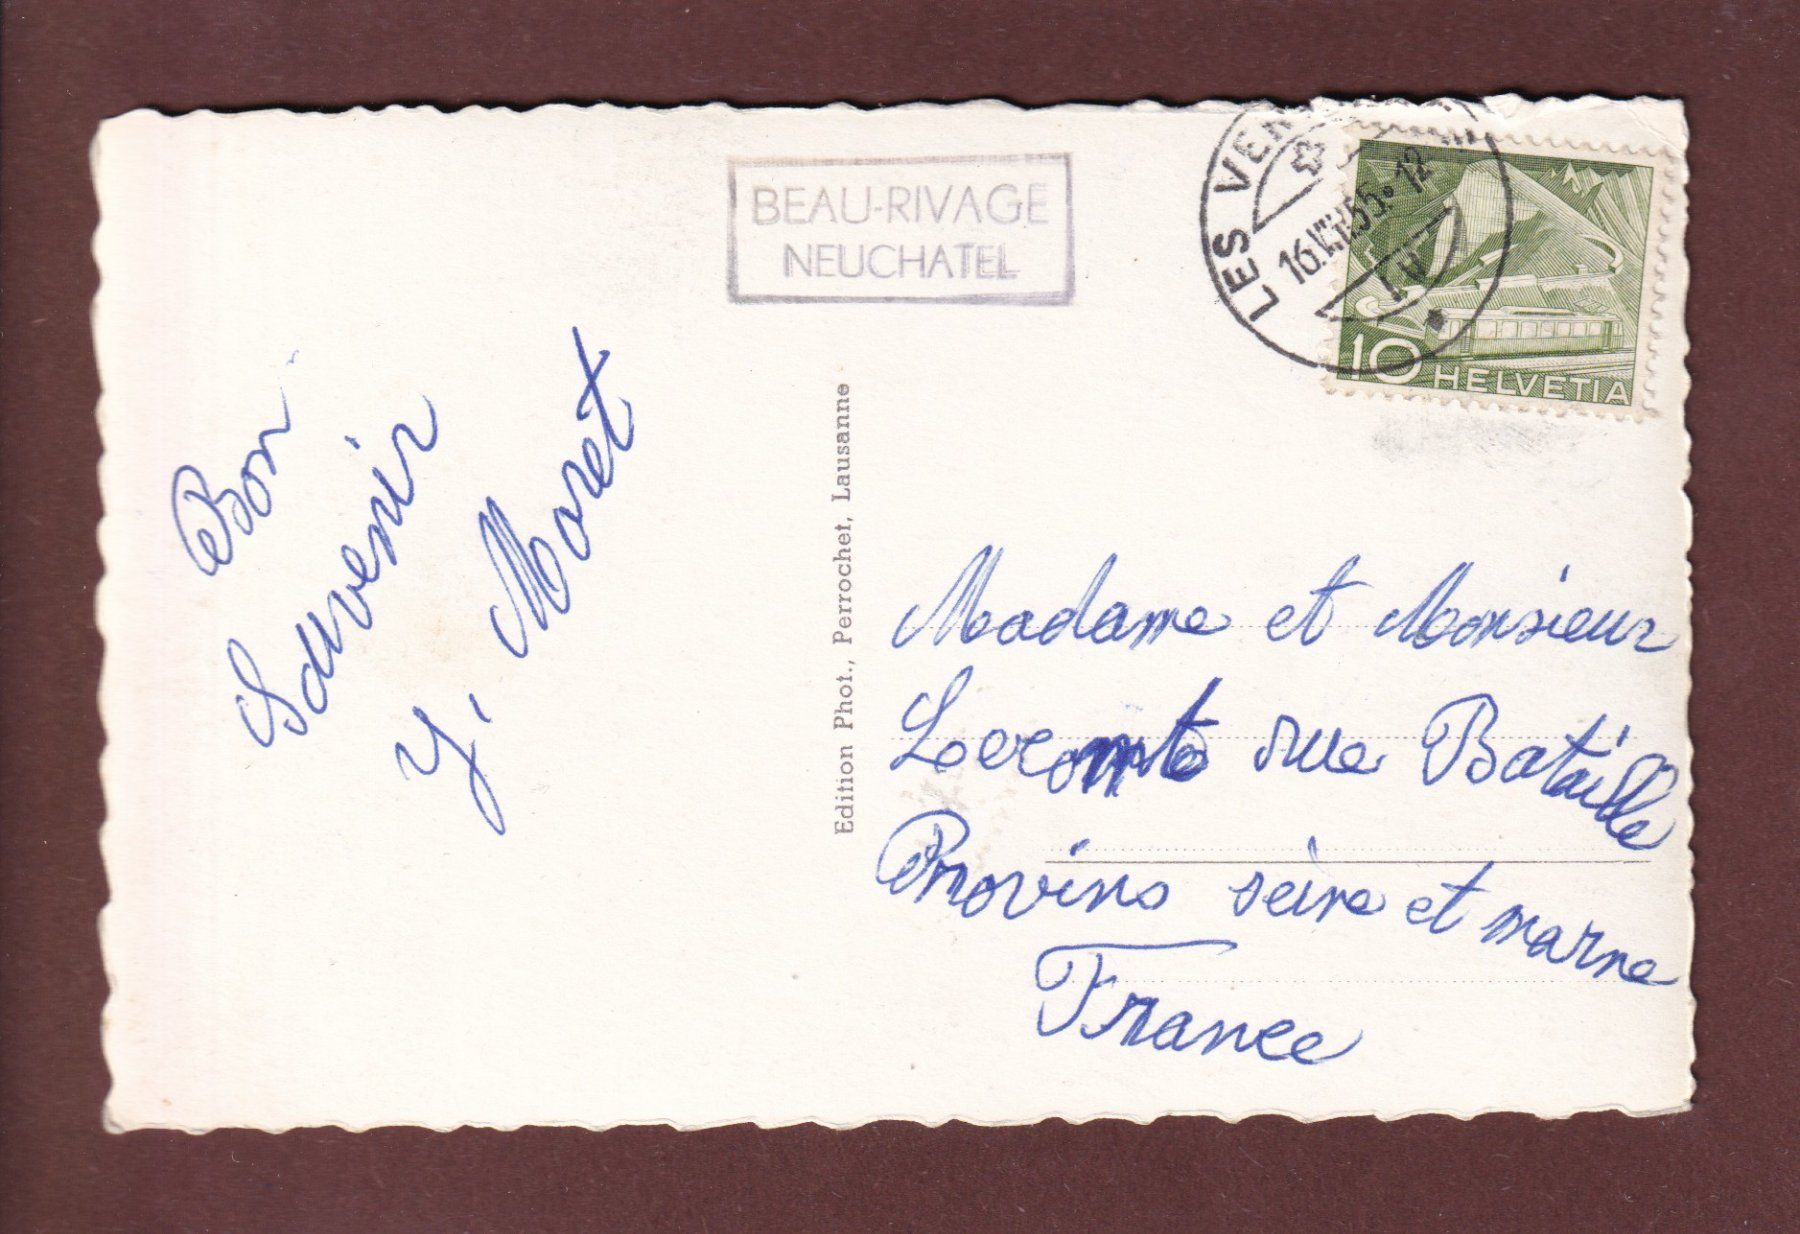 BEAU-RIVAGE
NEUCHATEL
LES
10 HELVETIA
Bon
Souvenir
Y. Moret
Edition Phot., Perrochet, Lausanne
Madame et Monsieur
Lecomte rue Bataille
Provins seine et marne
France